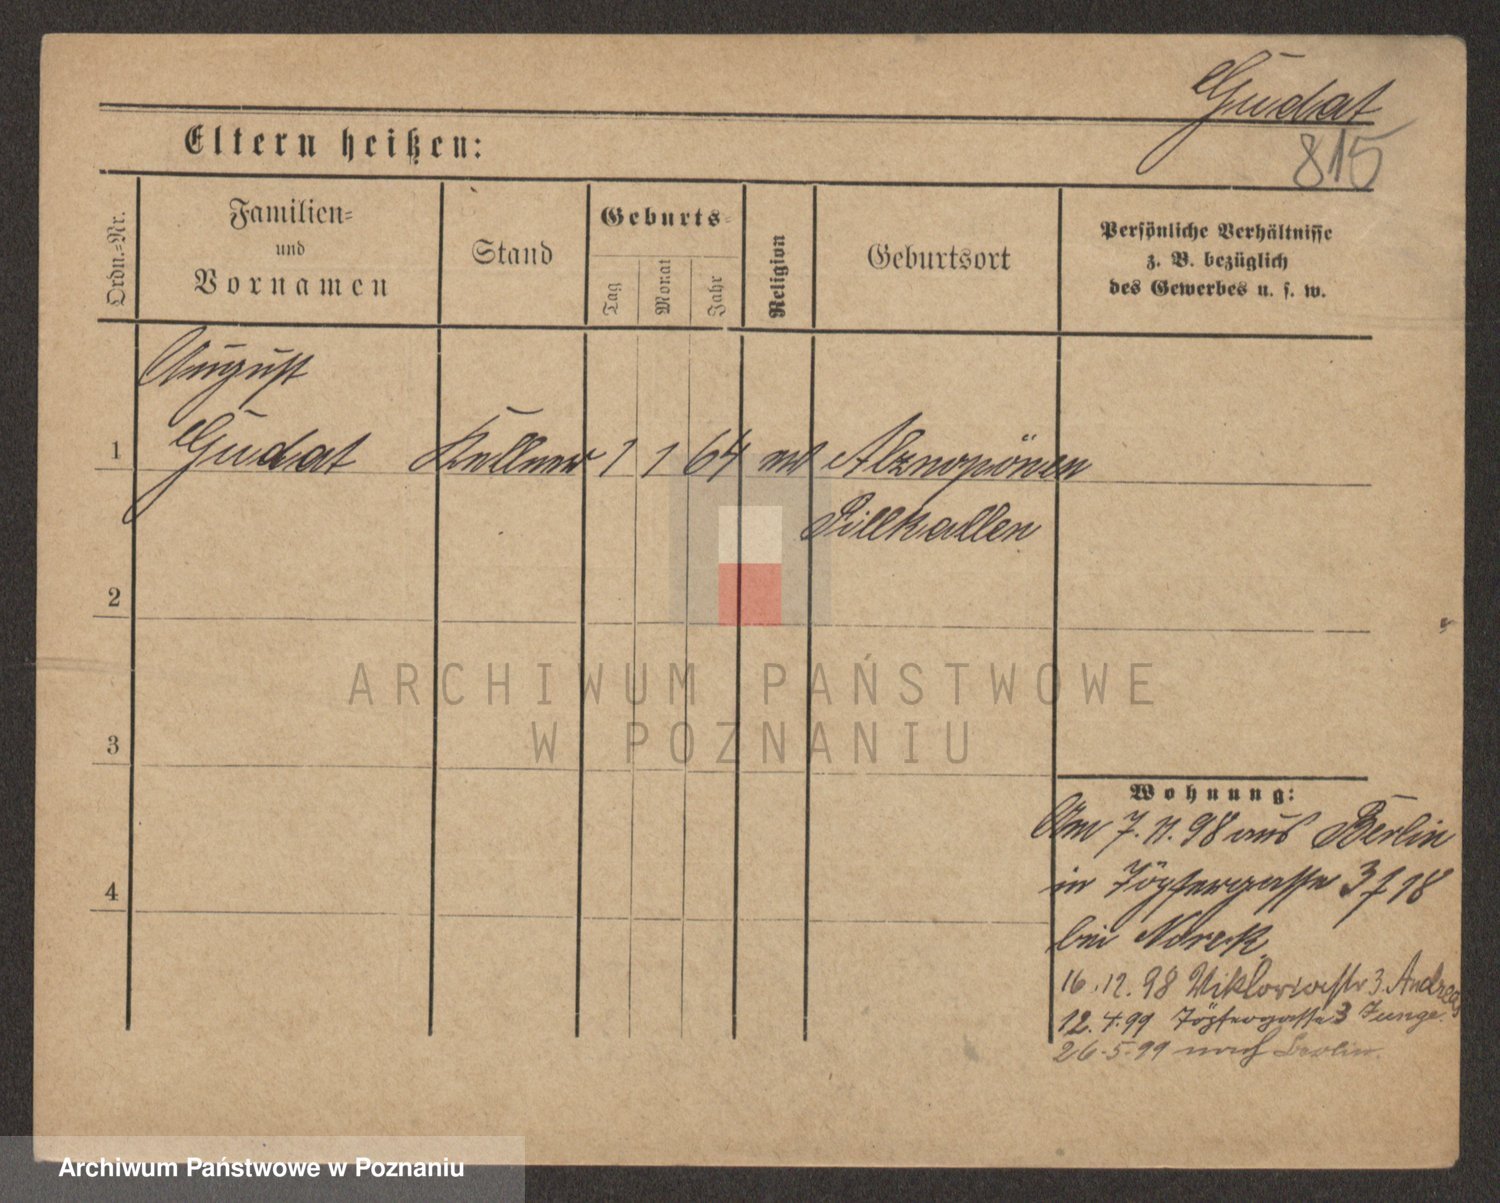 Gudat
815
Eltern heißen:
Ordn.=Nr.
Familien=
und
Vornamen
Stand
Geburts=
Tag
Monat
Jahr
Religion
Geburtsort
Persönliche Verhältnisse
z. B. bezüglich
des Gewerbes u. s. w.
August
1 Gudat Kellner 1 1 64
Pillkallen
2
3
4
ARCHIWUM PAŃSTWOWE
W POZNANIU
Wohnung:
Am 7. 11. 98 aus Berlin
in Töpfergasse 3
bei
16.12.98 Viktoriastr 3. Andreas
12.4.99 Töpfergasse 3 Junge.
26.5.99 nach Berlin.
Archiwum Państwowe w Poznaniu